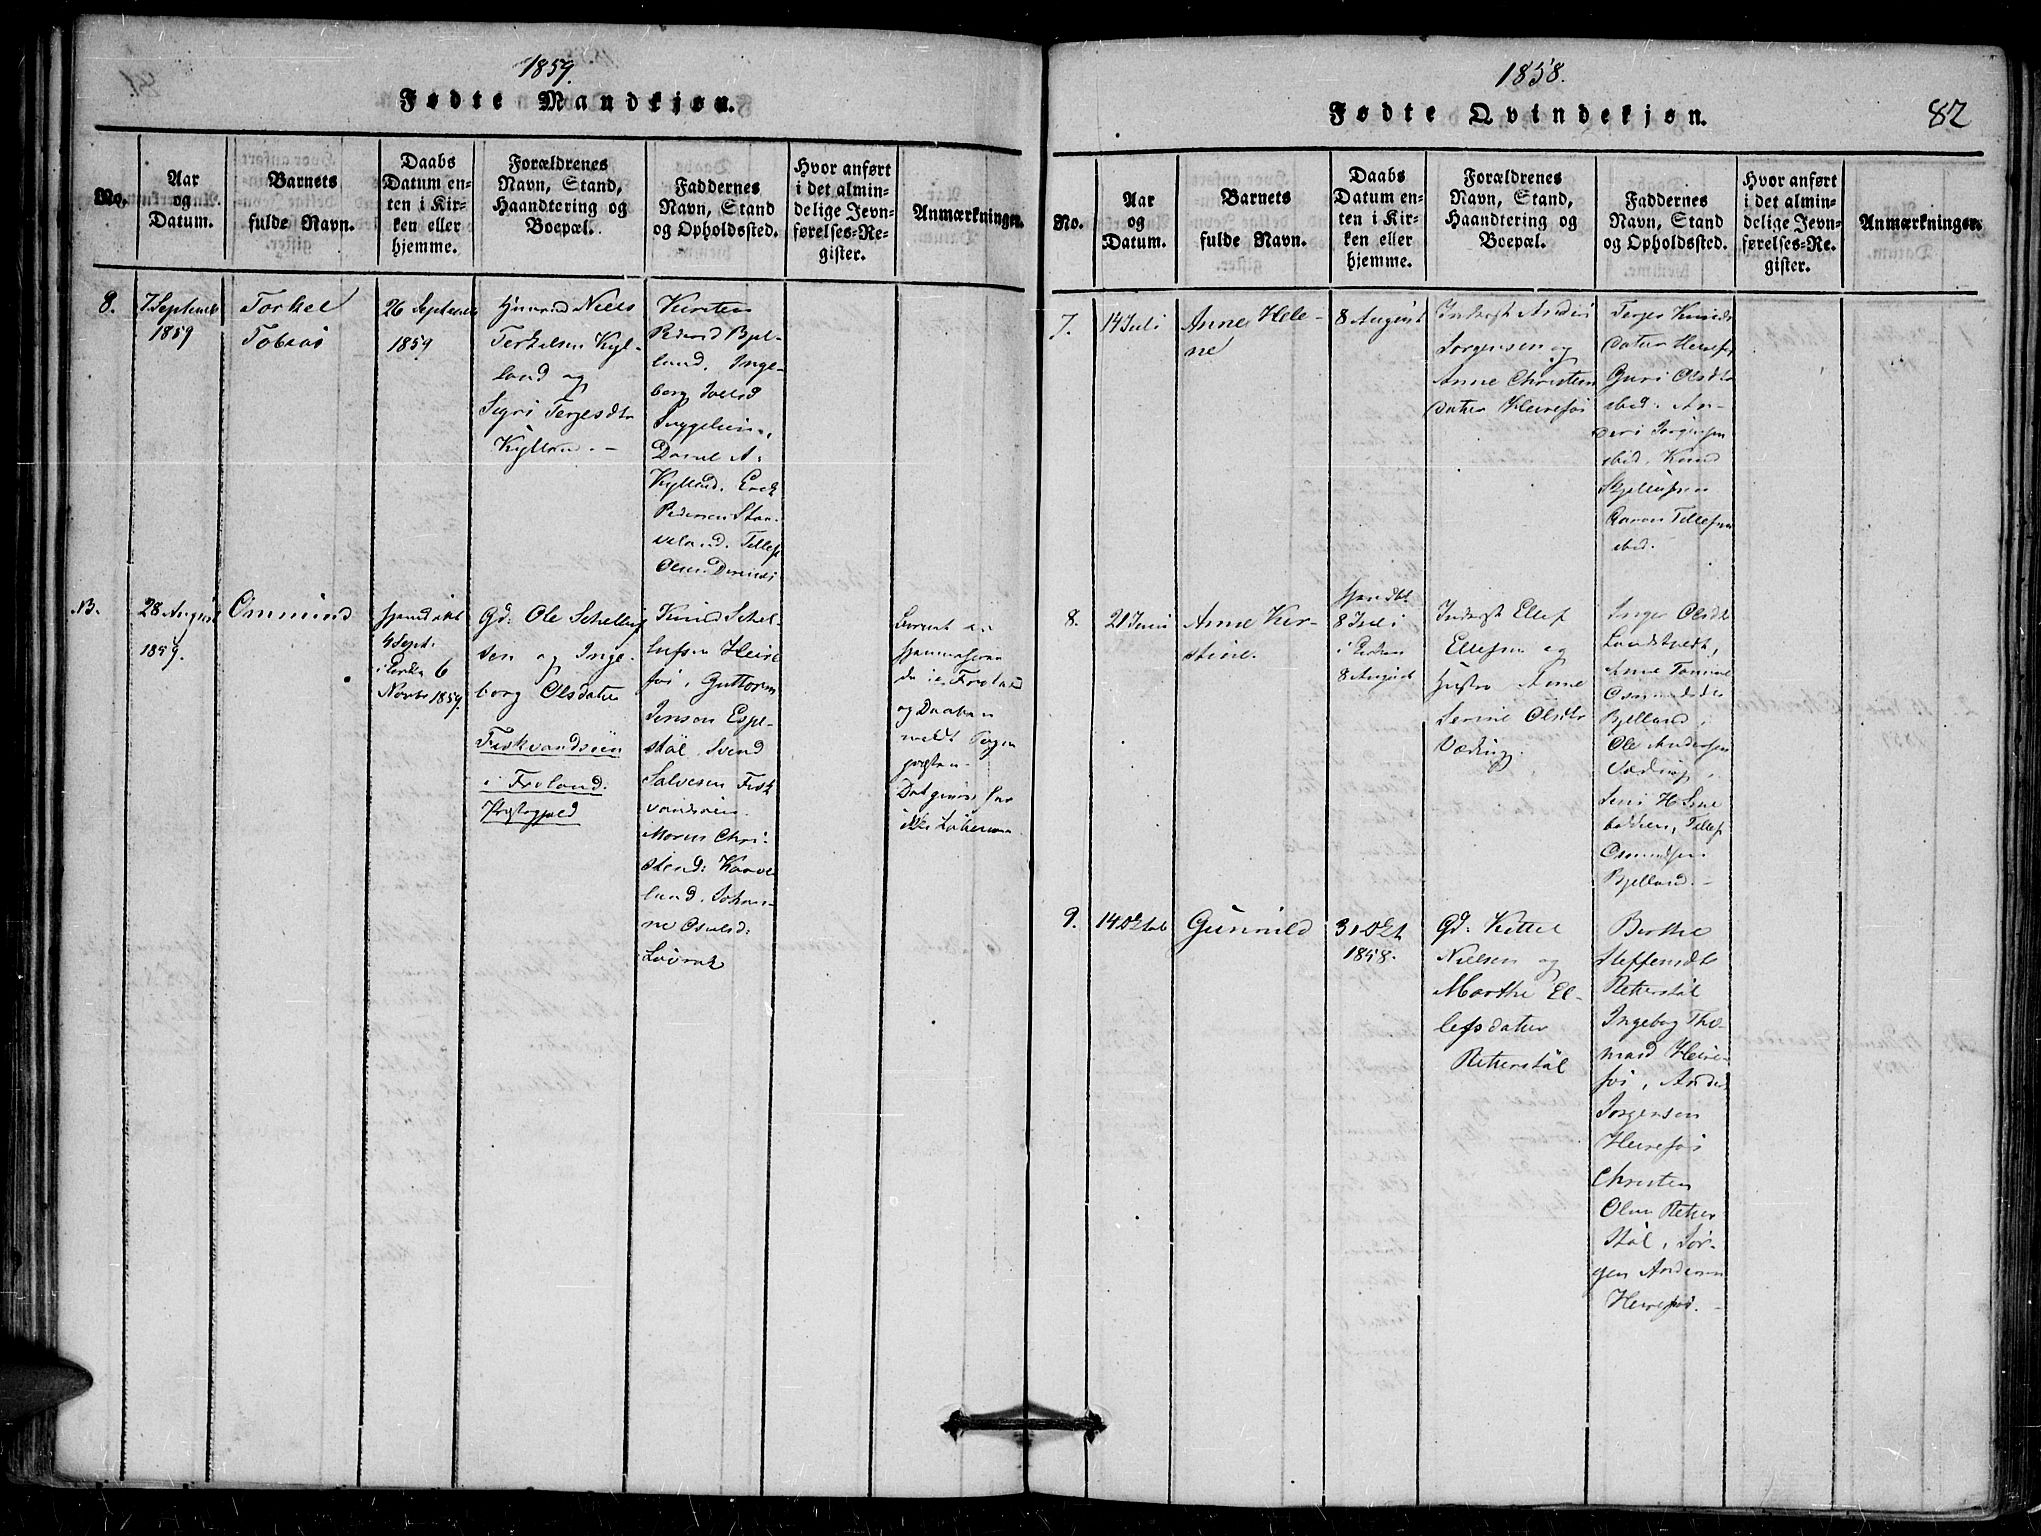 1859.
Fødte Mandkjøn.
No.
Aar
og
Datum.
Barnets
fulde Navn.
Daabs
Datum en-
ten i Kir-
ken eller
hjemme.
Forældrenes
Navn, Stand,
Haandtering og
Boepæl.
Faddernes
Navn, Stand
og Opholdssted.
Hvor anført
i det almin-
delige Jevn-
førelses-Re-
gister.
Anmærkninger.
8.
7 Septembr
1859
Torkel
Tobias
26 Septembr
1859
Niels
Terkelsen Kyl-
land og
Sigri Terjesdtr
Kylland. –
Kirsten
Pedersd Bjel-
land, Inge-
borg
Daniel A.
Kylland. Erik
Pedersen Sta-
veland. Tellef
Olsen
NB.
28 August
1859.
Ommund
hjemdøbt
4 Sept.
i Kirken 6
Novbr 1859.
Gd: Ole Schellef-
sen og Inge-
borg Olsdatter
Fiskvandseien
i Froland
Præstegjeld
Knud Schel-
lefsen Heire-
fos, Guttorm
Jensen Espe-
støl, Svend
Salvesen Fisk-
vandseien
Maren Chri-
stend:
land, Johan-
ne Osulsd:
Løvrak
hjemmehøren-
de i Froland
og Daaben
meldt Sogne-
præsten.
ikke
1858.
Fødte Qvindekjøn.
82
No.
Aar
og
Datum.
Barnets
fulde Navn.
Daabs
Datum en-
ten i Kir-
ken eller
hjemme.
Forældrenes
Navn, Stand,
Haandtering og
Boepæl.
Faddernes
Navn, Stand
og Opholdssted.
Hvor anført
i det almin-
delige Jevn-
førelses-Re-
gister.
Anmærkninger.
7.
14 Juli
Anne Hele-
ne
8 August
Inderst Anders
Jørgensen og
Anne Christens
datter Heirefos
Terjer Knuds
datter Heirefos
Guri Olsdtr
ibid. An-
ders Jørgensen
ibid. Knud
Skjellefsen
Aaron Tellefsen
ibid.
8.
21 Juni
Anne Kir-
stine.
hjemdbt
8 Juli
i Kirken
8 August
Inderst Ellef
Ellefsen og
Hustru Anne
Serine Olsdtr
Væding.
Inger Olsdtr
Landstvedt,
Anne Tomine
Osmundsdtr
Bjelland,
Ole Andersen
Væding,
Jens H.
Tellef
Osmundsen
Bjelland. –
9.
14 Oktob
Gunnild
31 Okt
1858.
Gd: Kittel
Nielsen og
Marthe El-
lefsdatter
Retterstøl
Berthe
Steffensdtr
Retterstøl
Ingeborg Tho-
masd Heire-
fos, Anders
Jørgensen
Heirefos
Christen
Olsen Retter
støl, Jør-
gen Andersen
Heirefos. –